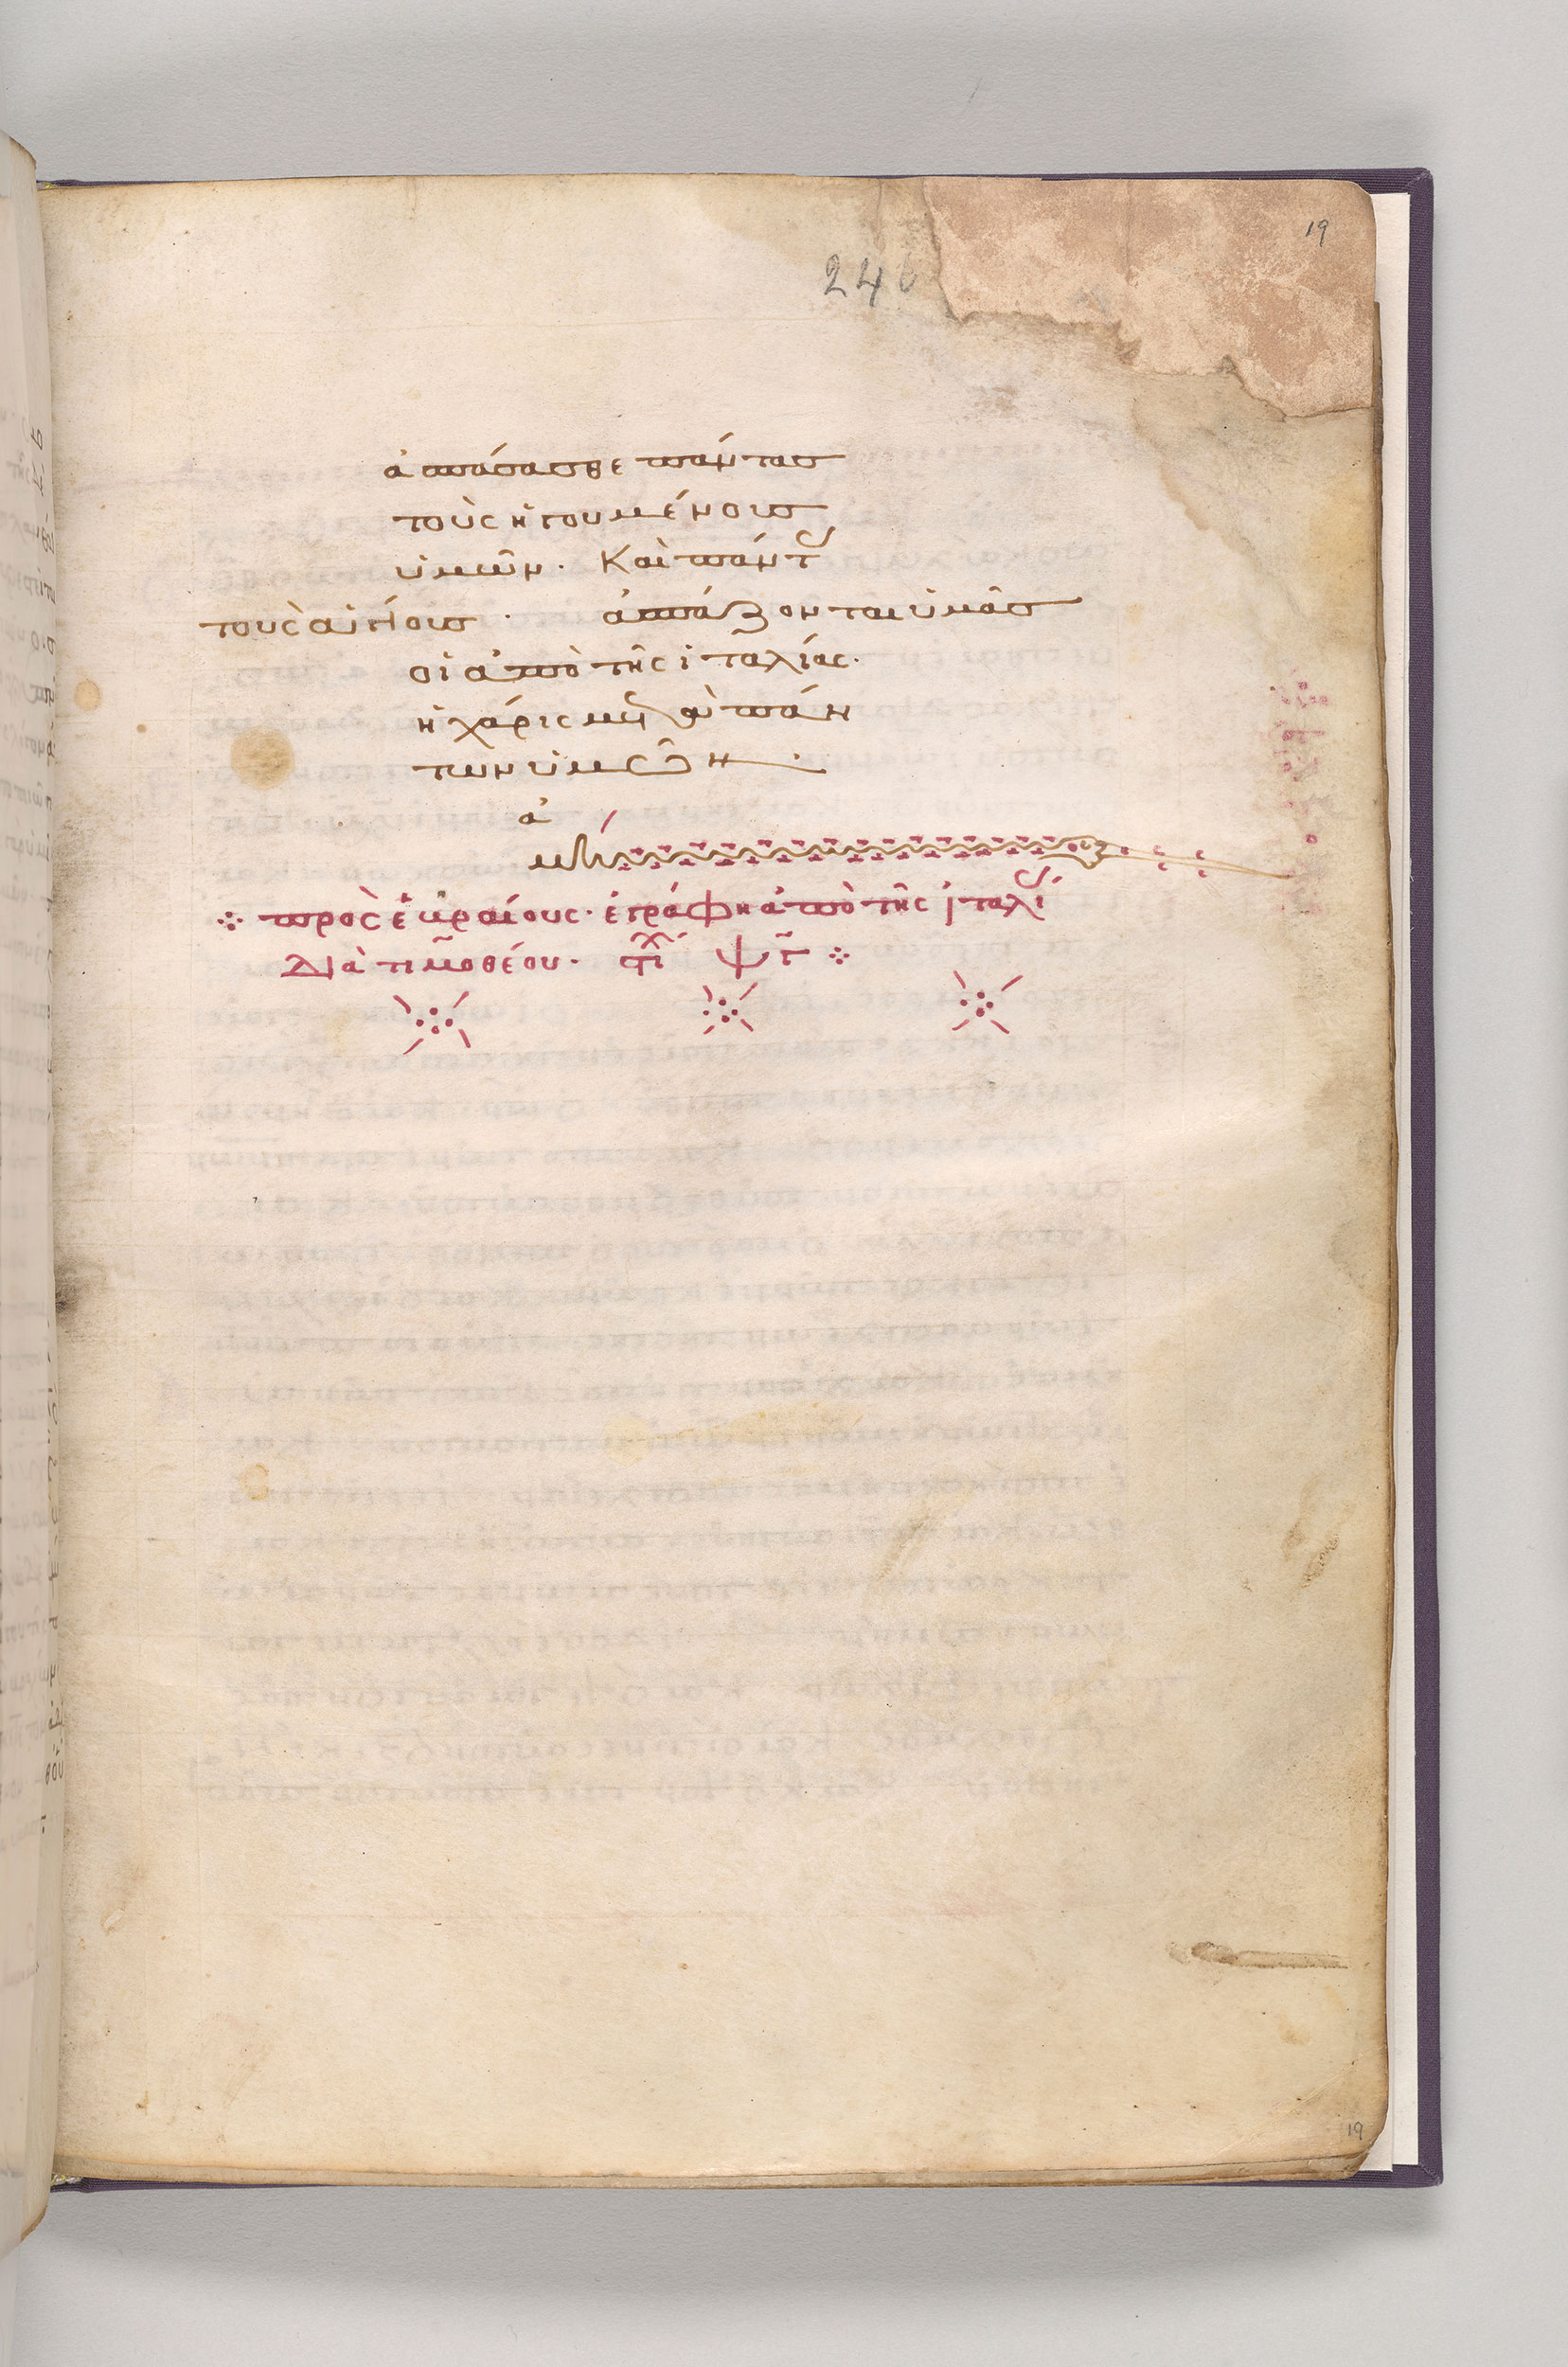 19
246
ἀσπάσασθε πάντας
τοὺς ἡγουμένους
ὑμῶν. καὶ πάντ
τοὺς ἁγίους. ἀσπάζονται ὑμᾶς
οἱ ἀπὸ τῆς ἰταλίας.
ἡ χάρις μετὰ πάν
των ὑμῶν.
ἀ
μήν
πρὸς ἑβραίους. ἐγράφη ἀπὸ τῆς ἰταλί
διὰ τιμοθέου. στί ψγ
19